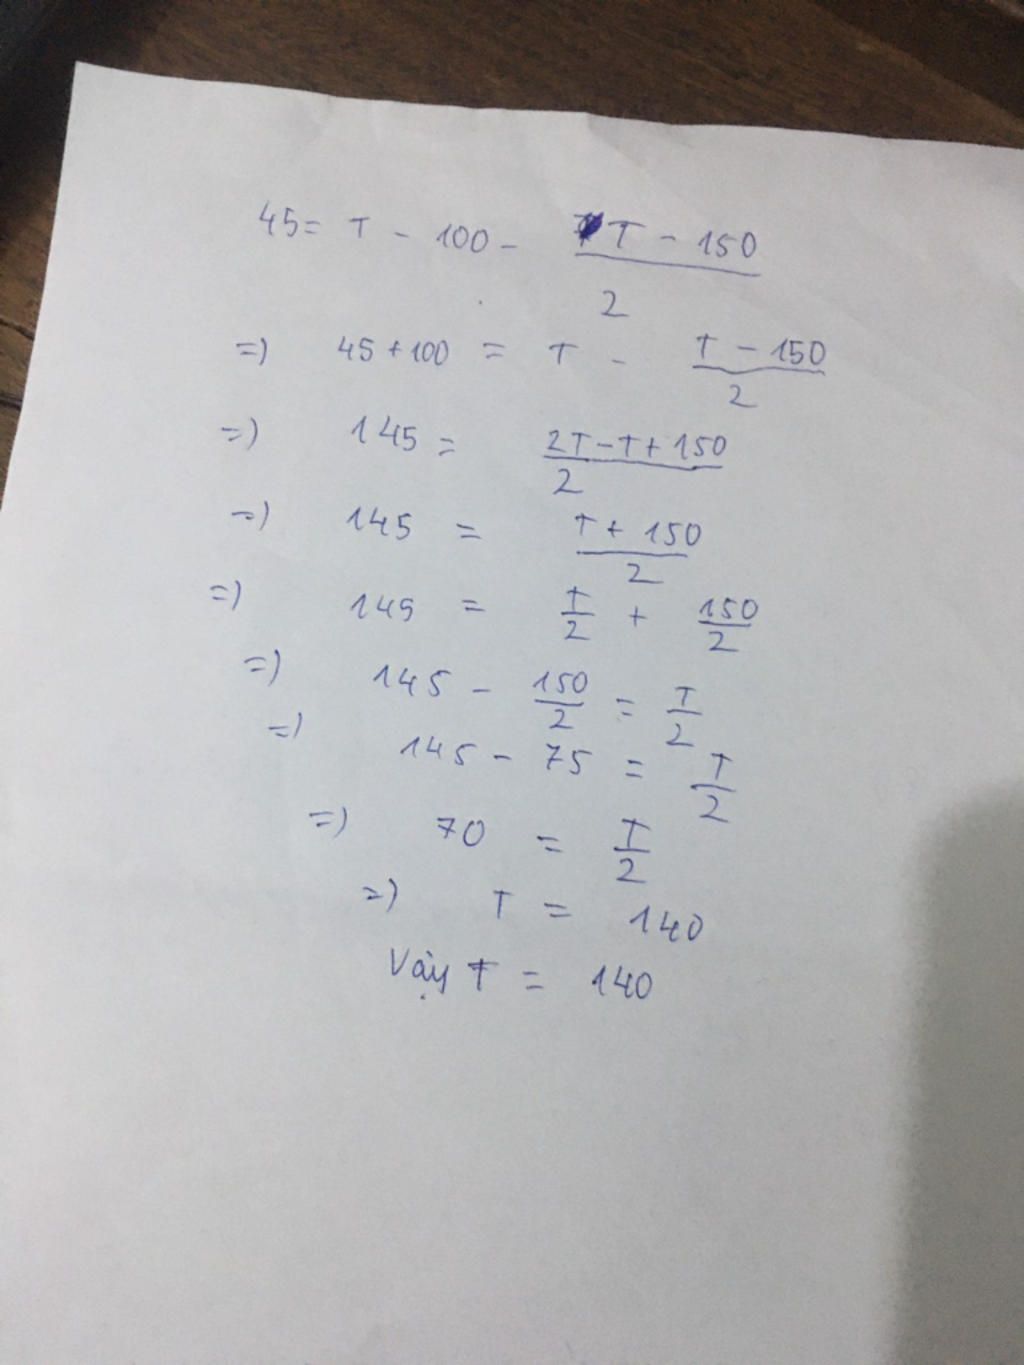 45 = T - 100 - T - 150 / 2
=) 45 + 100 = T - T - 150 / 2
=) 145 = 2T - T + 150 / 2
=) 145 = T + 150 / 2
=) 145 = T / 2 + 150 / 2
=) 145 - 150 / 2 = T / 2
=) 145 - 75 = T / 2
=) 70 = T / 2
=) T = 140
Vậy T = 140